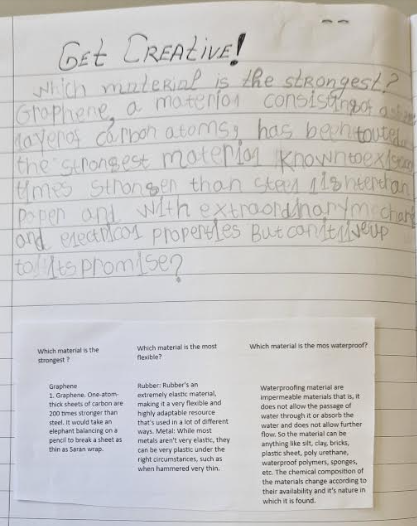 GET CREATIVE!
Which material is the strongest?
Graphene, a material consisting of a
layer of carbon atoms, has been touted
the strongest material known to exist
times stronger than steel lighter than
paper and with extraordinary mechan
and electrical properties But can it live up
to its promise?
Which material is the
strongest ?
Graphene
1. Graphene. One-atom-
thick sheets of carbon are
200 times stronger than
steel. It would take an
elephant balancing on a
pencil to break a sheet as
thin as Saran wrap.
Which material is the most
flexible?
Rubber: Rubber's an
extremely elastic material,
making it a very flexible and
highly adaptable resource
that's used in a lot of different
ways. Metal: While most
metals aren't very elastic, they
can be very pliable under the
right circumstances, such as
when hammered very thin.
Which material is the mos waterproof?
Waterproofing material are
impermeable materials that is, it
does not allow the passage of
water through it or absorb the
water and does not allow further
flow. So the material can be
anything like silt, clay, bricks,
plastic sheet, poly urethane,
waterproof polymers, sponges,
etc. The chemical composition of
the materials change according to
their availability and it's nature in
which it is found.